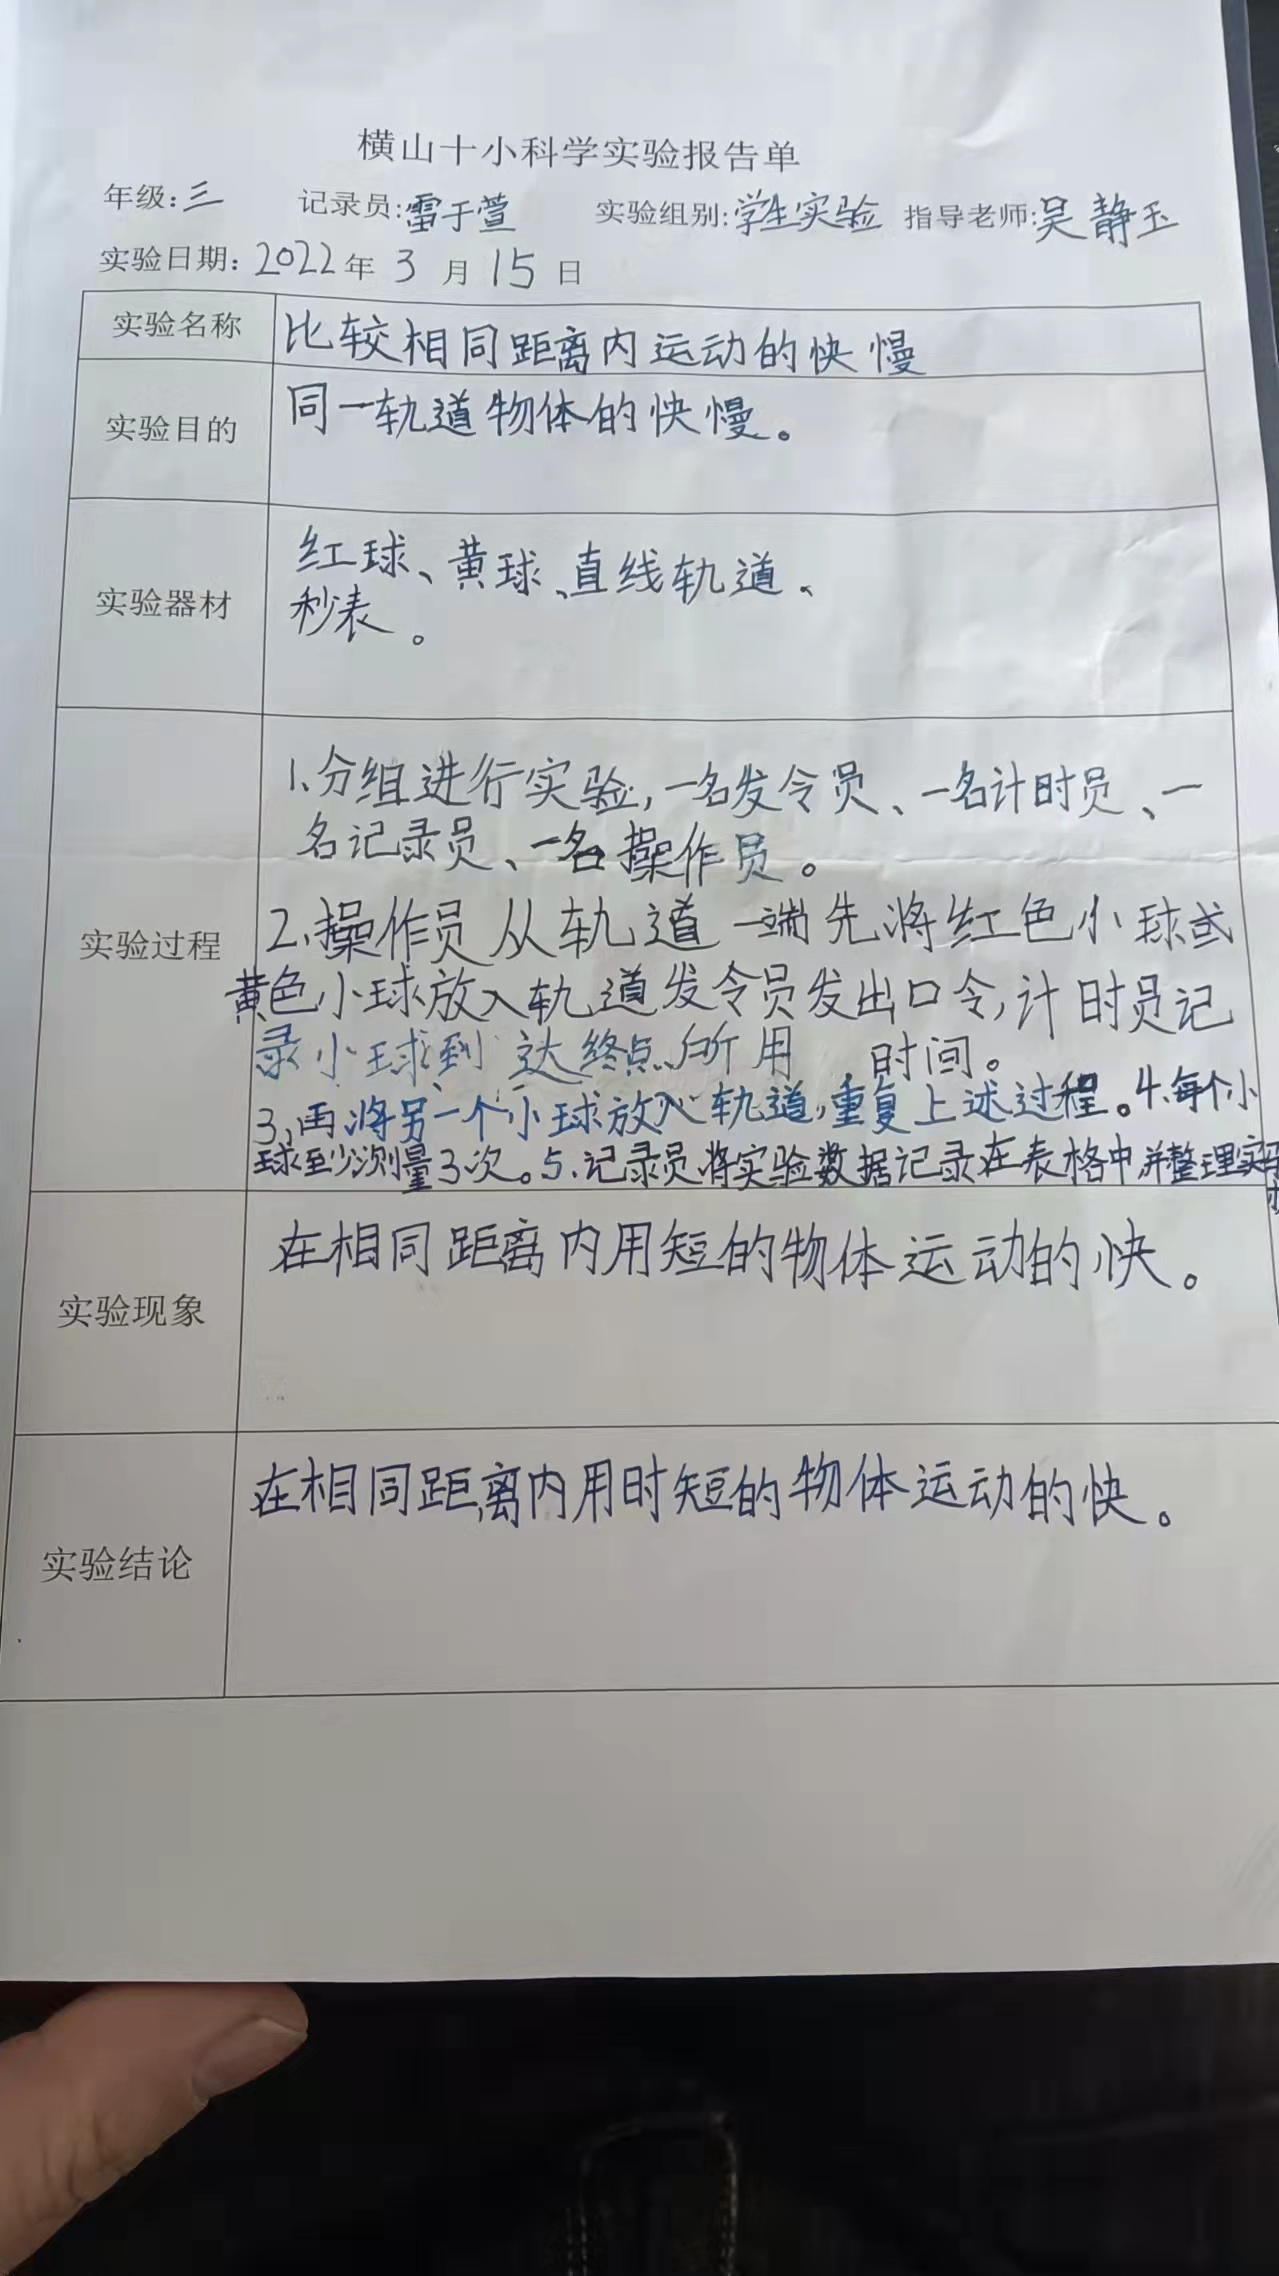 横山十小科学实验报告单
年级:三 记录员:雷于萱 实验组别:学生实验 指导老师:吴静玉
实验日期:2022年3月15日
实验名称 比较相同距离内运动的快慢
实验目的 同一轨道物体的快慢。
实验器材 红球、黄球、直线轨道、
秒表。
实验过程 1.分组进行实验,一名发令员、一名计时员、一
名记录员、一名操作员。
2.操作员从轨道一端先将红色小球或
黄色小球放入轨道发令员发出口令,计时员记
录小球到达终点所用时间。
3、再将另一个小球放入轨道,重复上述过程。4.每个小
球至少测量3次。5.记录员将实验数据记录在表格中并整理实
实验现象 在相同距离内用短的物体运动的快。
实验结论 在相同距离内用时短的物体运动的快。